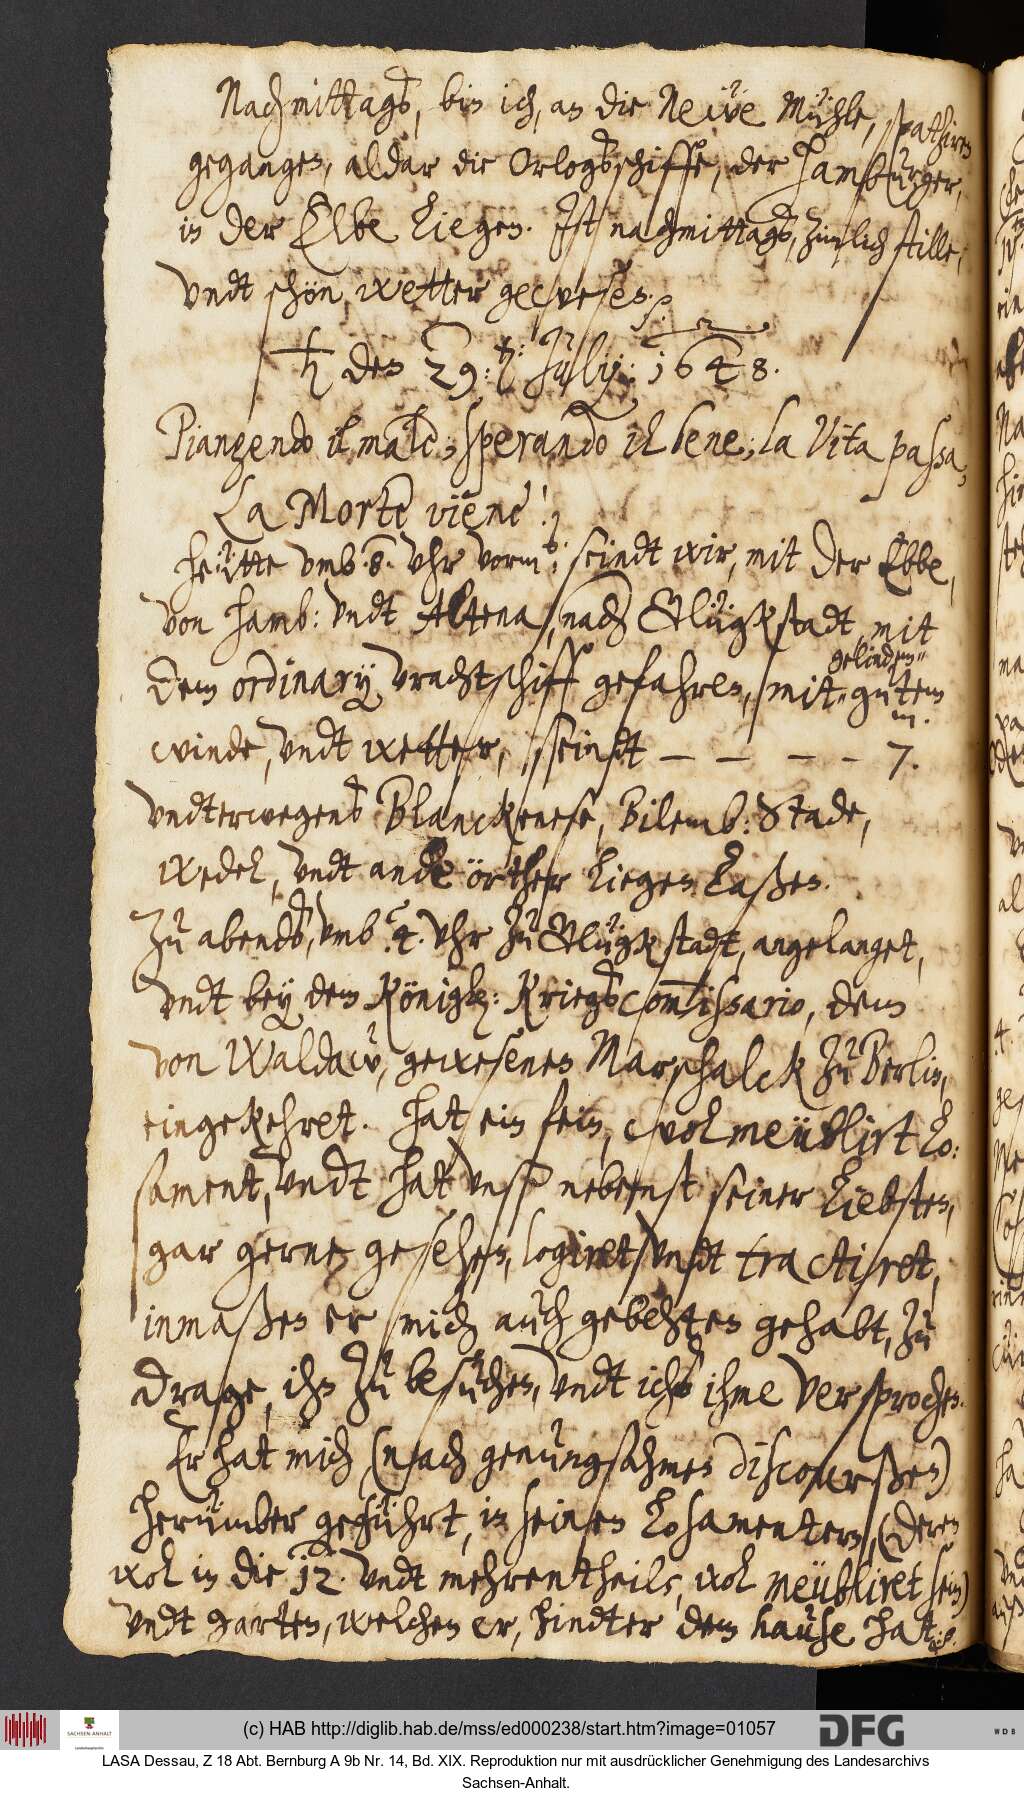 Nachmittagß, bin ich, an die Neẅe Mühle, spatziren
gegangen, aldar die Orlogßschiffe, der Hamburger,
in der Elbe liegen. Ist nachmittagß, zimlich stille,
vndt schön wetter gewesen.
♄ den 29. July: 1648.
Piangendo il male; sperando il bene; la Vita passa,
La Morte viene!
Heütte vmb 8. Uhr vorm: seindt wir, mit der Ebbe,
von Hamb: vndt Altena, nach Glügkstadt, mit
gelindem
dem ordinary vrachtschiff gefahren, mit gutem
m.
winde, vndt wetter, seindt — — — — 7.
vndterwegens Blanckenese, Bilemb: Stade,
Wedel, vndt andre örther liegen laßen.
Zu abendß, vmb 4. Uhr zu Glügkstadt, angelanget,
vndt bey dem Königl: Kriegßcommissario, dem
von Waldaw, gewesenen Marschalck zu Berlin,
eingekehret. Hat ein fein, wol meüblirt Lo:
sament, vndt hat vnß nebenst seiner Liebsten,
gar gerne gesehen, logiret vndt tractiret,
inmaßen er mich auch gebehten gehabt, zu
Drage, ihn zu besuchen, vndt ichs ihme versprochen.
Er hat mich (nach genungsahmen discourßen)
herümber geführt, in seinen Losamentern, (deren
wol in die 12. vndt mehrentheils, wol meübliret sein)
vndt garten, welchen er, hindter dem hause hat.
(c) HAB http://diglib.hab.de/mss/ed000238/start.htm?image=01057
SACHSEN-ANHALT
DFG
WDB
LASA Dessau, Z 18 Abt. Bernburg A 9b Nr. 14, Bd. XIX. Reproduktion nur mit ausdrücklicher Genehmigung des Landesarchivs
Sachsen-Anhalt.